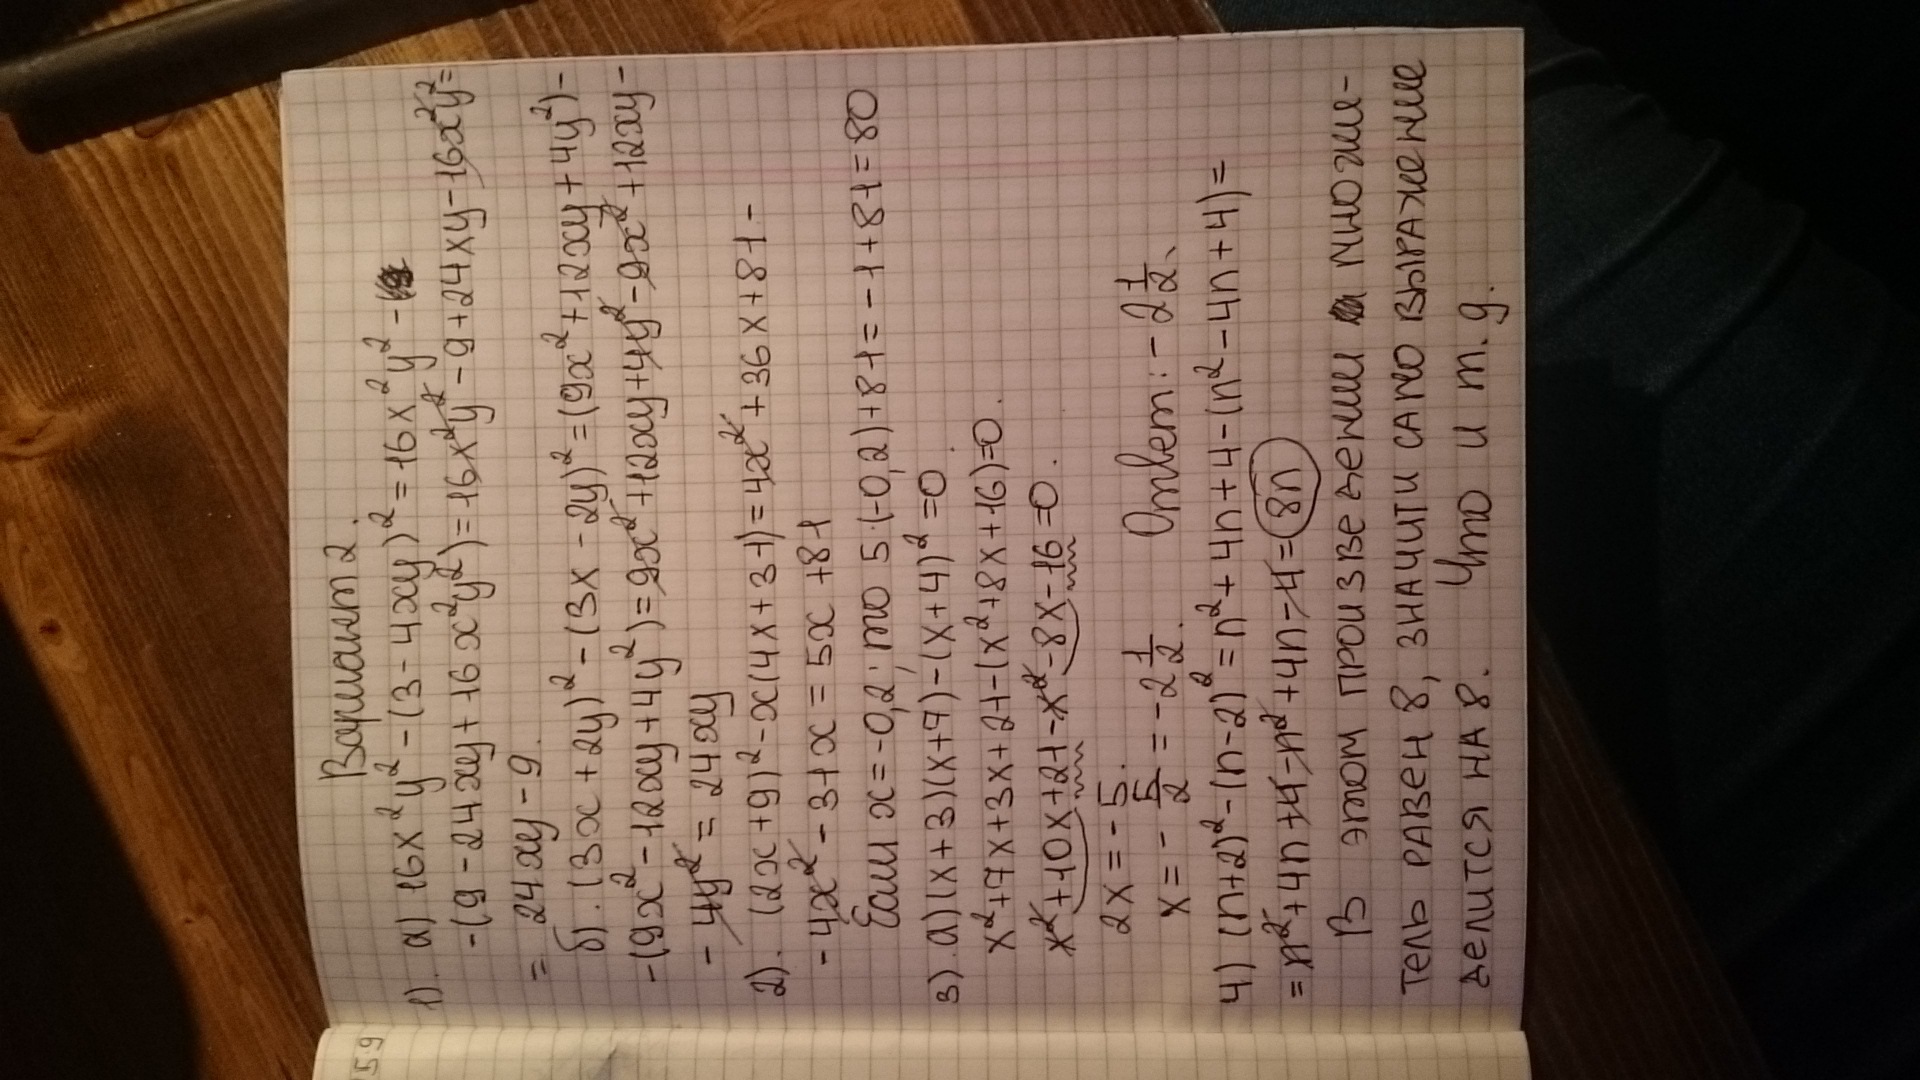 Вариант 2.
1). а) 16x²y² - (3 - 4xy)² = 16x²y² -
-(9 - 24xy + 16x²y²) = 16x²y² - 9 + 24xy - 16x²y² =
= 24xy - 9.
б). (3x + 2y)² - (3x - 2y)² = (9x² + 12xy + 4y²) -
-(9x² - 12xy + 4y²) = 9x² + 12xy + 4y² - 9x² + 12xy -
- 4y² = 24xy
2). (2x + 9)² - x(4x + 31) = 4x² + 36x + 81 -
- 4x² - 31x = 5x + 81
Если x = -0,2, то 5·(-0,2) + 81 = -1 + 81 = 80
3). а) (x + 3)(x + 7) - (x + 4)² = 0.
x² + 7x + 3x + 21 - (x² + 8x + 16) = 0.
x² + 10x + 21 - x² - 8x - 16 = 0.
2x = -5.
x = - 5/2 = -2 1/2. Ответ: -2 1/2.
4) (n+2)² - (n-2)² = n² + 4n + 4 - (n² - 4n + 4) =
= n² + 4n + 4 - n² + 4n - 4 = 8n
В этом произведении множи-
тель равен 8, значит и само выражение
делится на 8. Что и т. д.
159